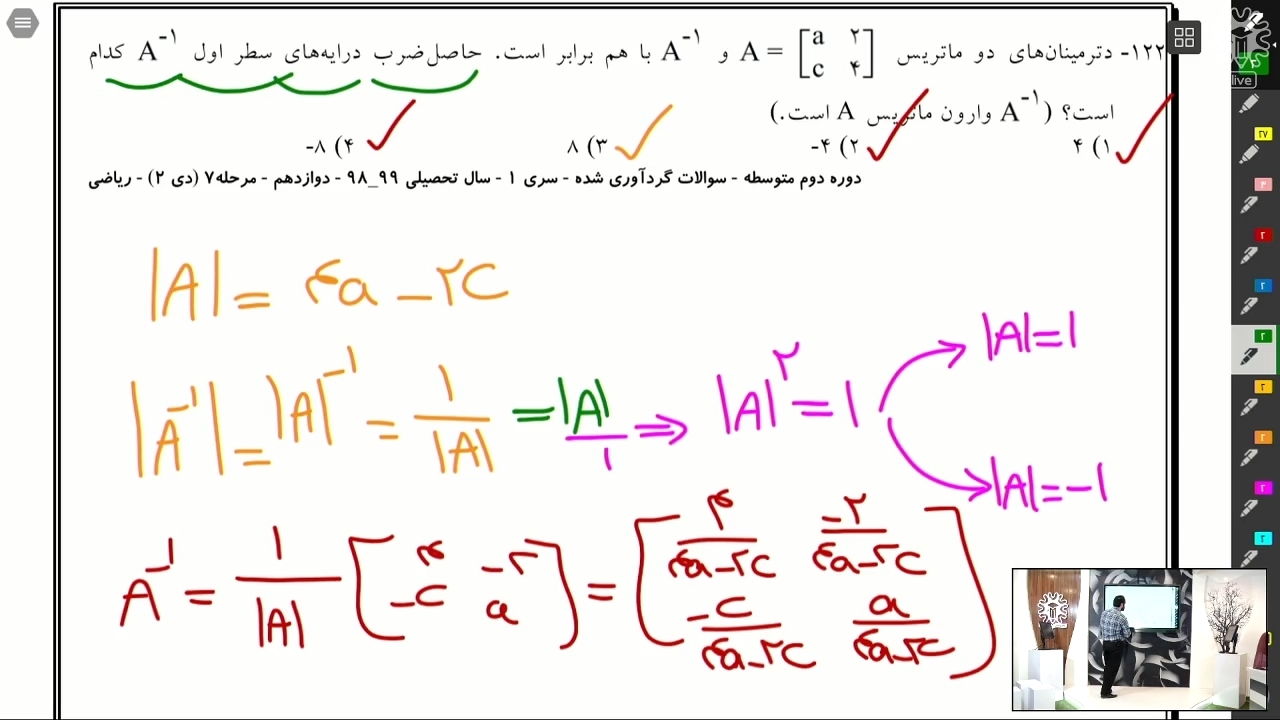 ۱۲۲- دترمینان‌های دو ماتریس A = [a ۲ c ۴] و A⁻¹ با هم برابر است. حاصل‌ضرب درایه‌های سطر اول A⁻¹ کدام
است؟ (A⁻¹ وارون ماتریس A است.)
۱) ۴ ۲) ۴- ۳) ۸ ۴) ۸-
دوره دوم متوسطه - سوالات گردآوری شده - سری ۱ - سال تحصیلی ۹۹_۹۸ - دوازدهم - مرحله۷ (دی ۲) - ریاضی
|A| = ۴a - ۲C
|A⁻¹| = |A|⁻¹ = ۱/|A| = |A|/۱ ⇒ |A|۲ = ۱
|A| = ۱
|A| = -۱
A⁻¹ = ۱/|A| [۴ -۲ -C a] = [۴/۴a-۲C -۲/۴a-۲C -C/۴a-۲C a/۴a-۲C]
live
۲۷
۴
۲
۲
۲
۲
۲
۲
۲